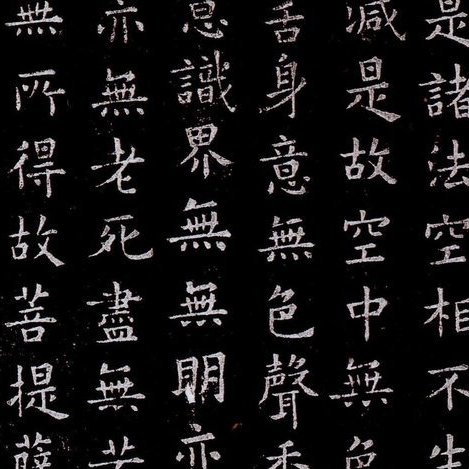 是諸法空相不生
減是故空中無色
舌身意無色聲香
意識界無無明亦
亦無老死盡無苦
無所得故菩提薩